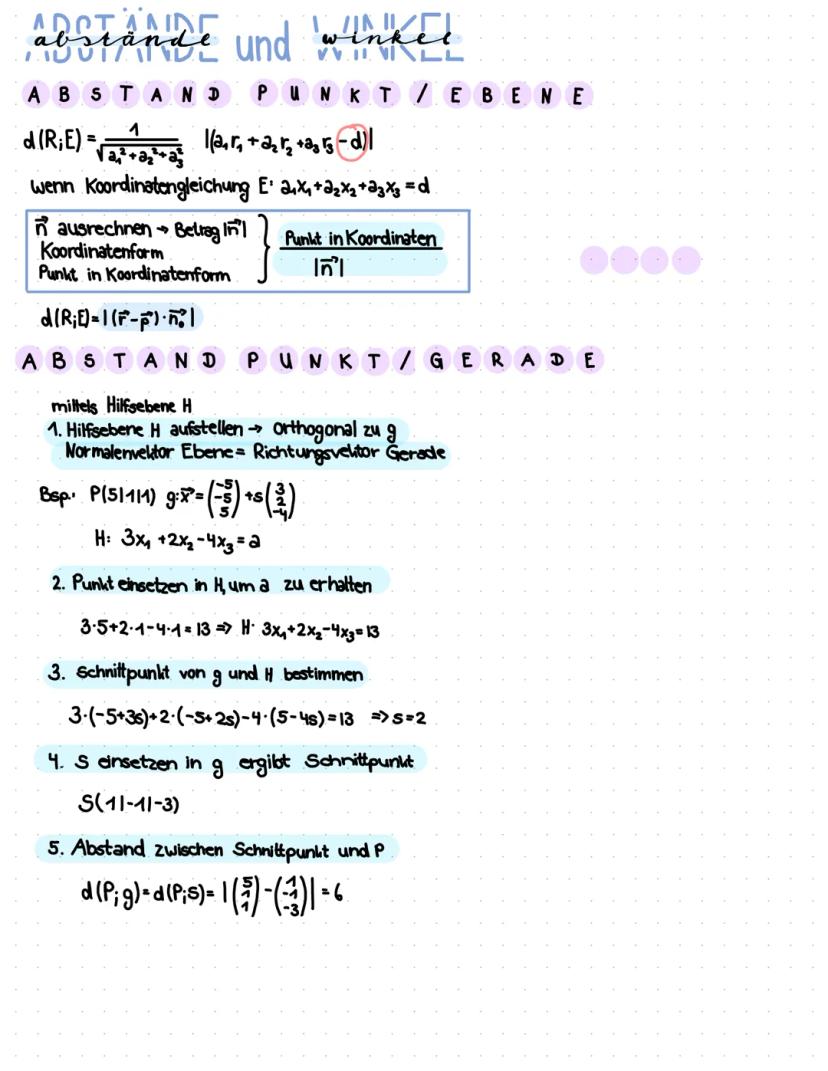 ABSTÄNDE und WINKEL
abstände winkel
ABSTAND PUNKT / EBENE
d(R;E) = 1/√(a₁²+a₂²+a₃²) |(a₁r₁ + a₂r₂ + a₃r₃ - d)|
wenn Koordinatengleichung E: a₁x₁+a₂x₂+a₃x₃ = d
n⃗ ausrechnen → Betrag |n⃗|
Koordinatenform
Punkt in Koordinatenform
Punkt in Koordinaten
|n⃗|
d(R;E) = |(r⃗-p⃗)·n⃗₀|
ABSTAND PUNKT / GERADE
mittels Hilfsebene H
1. Hilfsebene H aufstellen → Orthogonal zu g
Normalenvektor Ebene = Richtungsvektor Gerade
Bsp. P(5|1|1) g: x⃗ = (-5 -5 5) + s(3 2 -4)
H: 3x₁ + 2x₂ - 4x₃ = a
2. Punkt einsetzen in H, um a zu erhalten
3·5+2·1-4·1 = 13 ⇒ H: 3x₁+2x₂-4x₃ = 13
3. Schnittpunkt von g und H bestimmen
3·(-5+3s)+2·(-5+2s)-4·(5-4s) = 13 ⇒ s=2
4. S einsetzen in g ergibt Schnittpunkt
S(1|-1|-3)
5. Abstand zwischen Schnittpunkt und P
d(P;g) = d(P;S) = |(5 1 1) - (1 -1 -3)| = 6